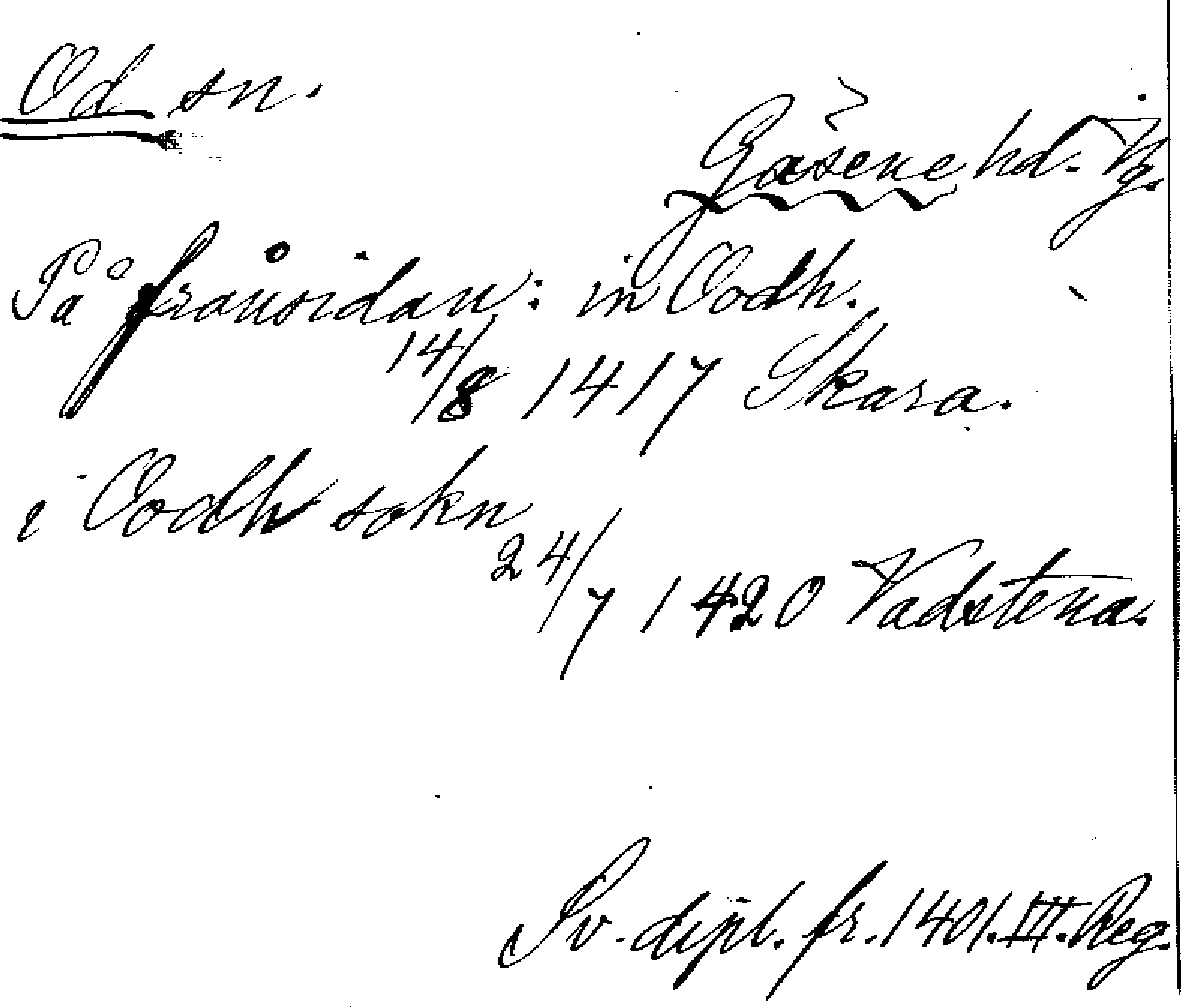 Od sn.
Gäsene hd. Vg.
På frånsidan: in Oodh.
14/8 1417 Skara.
i Oodh sokn
24/7 1420 Vadstena.
Sv. dipl. fr. 1401. III. Reg.